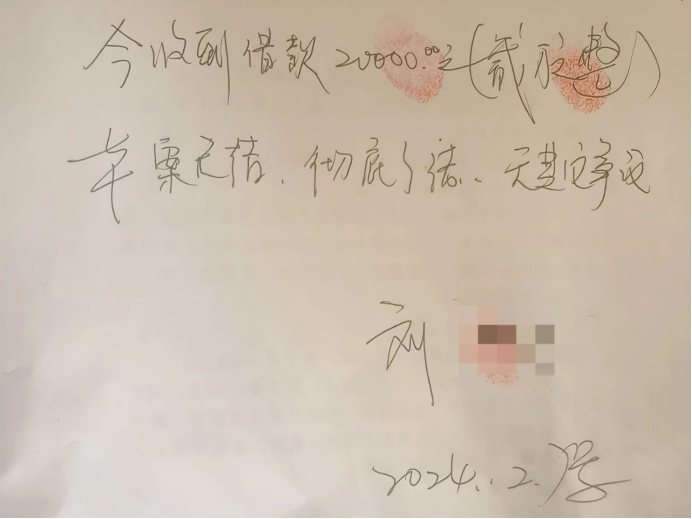 今收到借款20000.00元(贰万整)
本案已结、彻底了结、无其它争议
刘
2024.2.7号